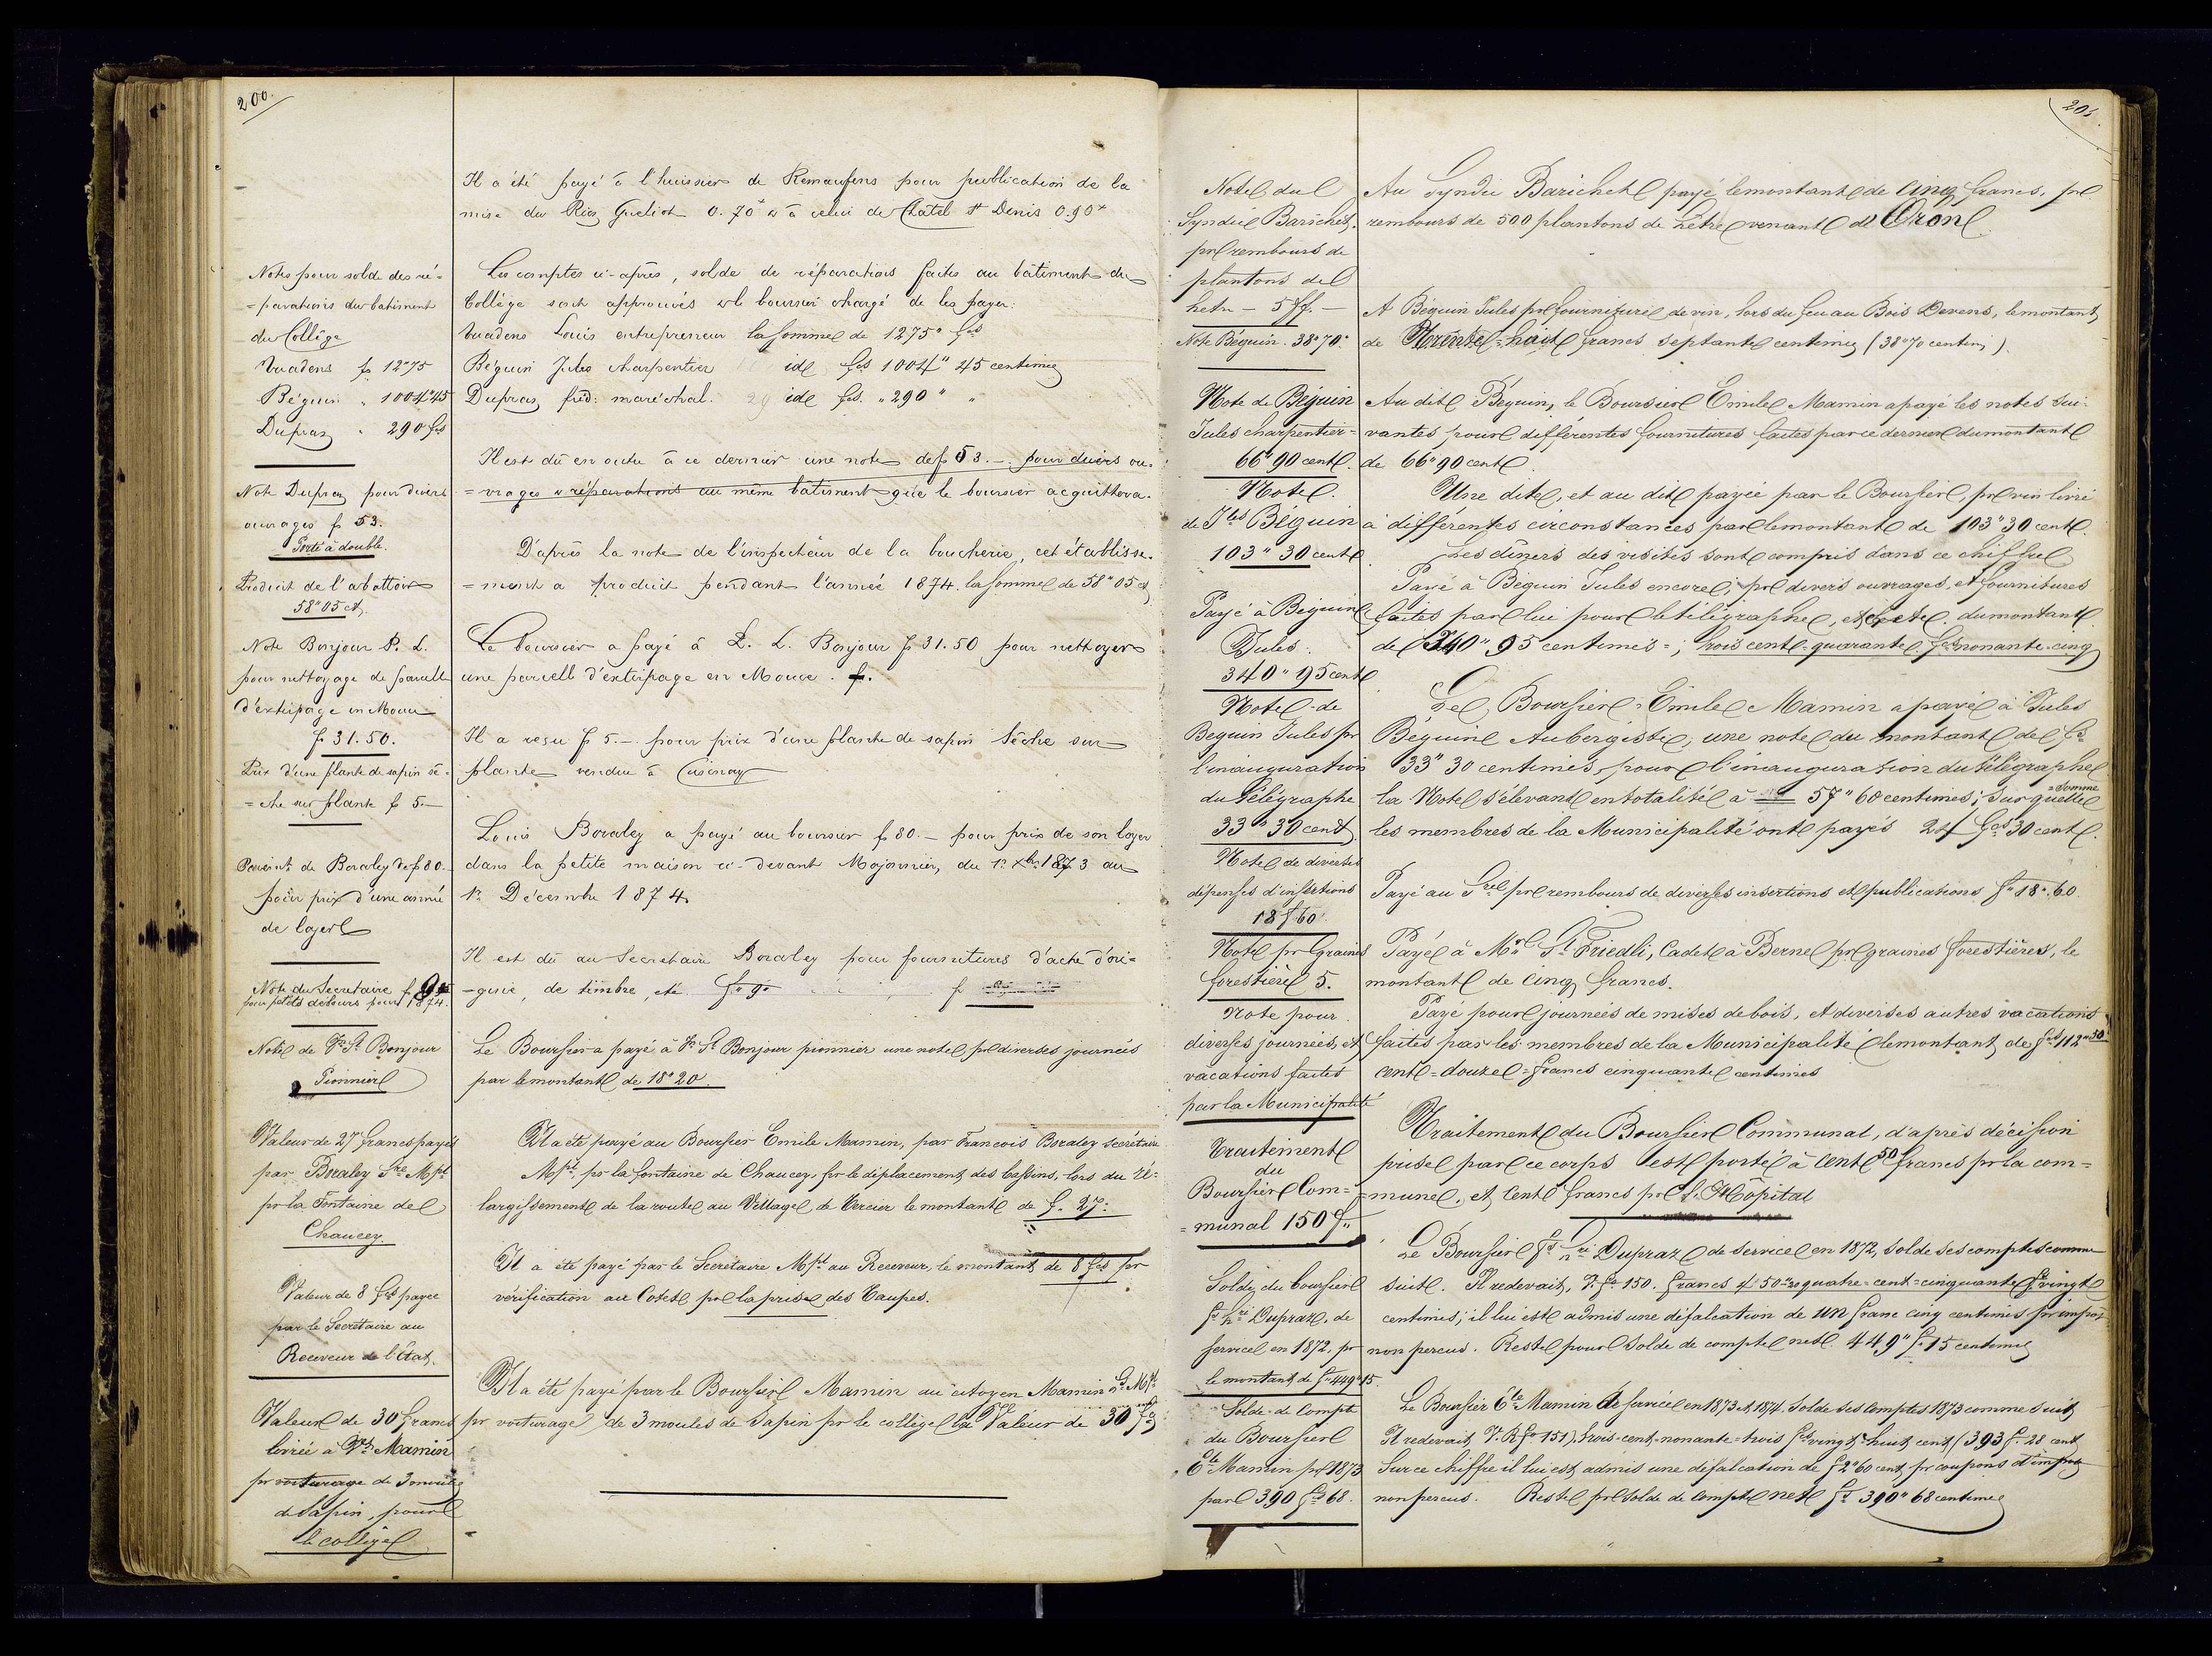 200.
Il a été payé à l'huissier de Remaufens pour publication de la
mise du Riaz 0.70 & à celui de Châtel St Denis 0.90
Notes pour solde des ré=
=parations du batiment
du Collège
Vuadens fr 1275
Béguin " 1004"45
Dupraz " 290 fcs
Les comptes ci-après, solde de réparations faites au bâtiment du
Collège sont approuvés et le boursier chargé de les payer:
Vuadens Louis entrepreneur la somme de 1275" fcs
Béguin Jules charpentier id fcs 1004" 45 centimes
Dupraz fréd: maréchal. id fcs. "290" "
Note Dupraz pour divers
ouvrages fr 53.
Porté à double.
Il est dû en outre à ce dernier une note de fr 53.— pour divers ou=
=vrages & réparations au même bâtiment que le boursier acquittera.
Produit de l'abattoir
58"05 ct.
D'après la note de l'inspecteur de la boucherie, cet établisse=
=ment a produit pendant l'année 1874. la somme de 58"05 ct
Note Bonjour P. L.
pour nettoyage de parcelle
d'extirpage en Mouce
fr 31.50.
Le boursier a payé à L. L. Bonjour fr 31.50 pour nettoyer
une parcelle d'extirpage en Mouce.
Prix d'une plante de sapin sè=
=che sur plante fr 5.—
Il a reçu fr 5.— pour prix d'une plante de sapin sèche sur
plante vendue à
de Boraley de fr 80.
pour prix d'une année
de loyer
Louis Boraley a payé au boursier fr 80.— pour prix de son loyer
dans la petite maison ci-devant Majonnier, du 1er Xbre 1873 au
1er Décembre 1874
Note du Secretaire fr 9
pour petits débours pour 1874.
Il est dû au Secretaire Boraley pour fournitures d'acte d'ori=
=gine, de timbre, etc. fr "9"
Note de Bonjour
Pionnier
Le Boursier a payé à Bonjour pionnier une note pr diverses journées
par le montant de 18"20.
Valeur de 27 francs payés
par Boraley Sre Mpl
pr la Fontaine de
Chaucey.
Il a été payé au Boursier Emile Mamin, par Francois Boraley secrétaire
Mpl, pr la fontaine de Chaucey, pr le déplacement des bassins, lors du ré=
largissement de la route au Village de Vercier le montant de f. 27.
Valeur de 8 frs payée
par le Secrétaire au
Receveur de l'État.
Il a été payé par le Secretaire Mpl au Receveur, le montant de 8 fcs pr
vérification au Cotet pr la prise des Taupes.
Valeur de 30 francs
livrée à Mamin
pr voiturage de 3 moules
de Sapin, pour
le collège
Il a été payé par le Boursier Mamin au citoyen Mamin
pr voiturage de 3 moules de Sapin pr le collège la Valeur de 30 fcs
201.
Note du
Syndic Barichet.
pr rembours de
plantons de
hetre — 5 ff. —
Au Syndic Barichet payé le montant de cinq francs, pr
rembours de 500 plantons de hêtre venant de Oron
Note Béguin. 38"70"
A Béguin Jules pr fourniture de vin, lors du feu au Bois Devens, le montant
de Trente-huit francs septante centimes (38"70 centim).
Note de Béguin
Jules charpentier =
66"90 cent.
Au dit Béguin, le Boursier Emile Mamin a payé les notes sui=
vantes pour differentes fournitures faites par ce dernier du montant
de 66"90 cent.
Note.
de Jles Béguin
103"30 cent
Une dite, et au dit payée par le Boursier, pr vin livré
à différentes circonstances par le montant de 103"30 cent.
Les dîners des visites sont compris dans ce chiffre
Payé à Beguin
Jules.
340"95 cent
Payé à Béguin Jules encore, pr divers ouvrages, et fournitures
faites par lui pour le télégraphe, etc etc. du montant
de 340"95 centimes =; trois cent-quarante fcs nonante-cinq
Note de
Beguin Jules pr
l'inauguration
du télégraphe
33"30 cent
Le Boursier Emile Mamin a payé à Jules
Béguin Aubergiste, une note du montant de fs
33"30 centimes, pour l'inauguration du télégraphe
la Note s'élevant en totalité à 57"60 centimes; sur quelle =somme
les membres de la Municipalité ont payés 24 fcs 30 cent.
Note de diverses
dépenses d'insertions
18 f 60
Payé au Sre pr rembours de diverses insertions et publications f" 18".60.
Note pr graines
forestière 5.
Payé à Mr St Friedli, Cadet à Berne pr graines forestières, le
montant de cinq francs.
Note pour
diverses journées, et
vacations faites
par la Municipalité
Payé pour journées de mises de bois, et diverses autres vacations
faites par les membres de la Municipalité le montant de fcs 112"50.
cent=douze=francs cinquante centimes
Traitement
du
Boursier Com=
=munal 150 f"
Traitement du Boursier Communal, d'après décision
prise par ce corps est porté à cent 50 francs pr la com=
=mune, et Cent francs pr l'Hôpital
Solde du boursier
Dupraz, de
service en 1872, pr
le montant de fr 449"15.
Le Boursier Dupraz de service en 1872, solde ses comptes comme
suit. Il redevait, 150. francs 450"20 quatre=cent=cinquante f vingt
centimes; il lui est admis une défalcation de un franc cinq centimes pr impôt
non percus. Reste pour solde de compte net. 449" f 15 centimes
Solde de Compte
du Boursier
Ele Mamin pr 1873
par 390 fcs 68.
Le Boursier Ele Mamin de service en 1873 et 1874. solde ses comptes 1873 comme suit
Il redevait, 151) trois-cent-nonante=trois fcs vingt-huit cent (393 f. 28 cent
Sur ce chiffre il lui est admis une défalcation de f 2"60 cent pr coupons d'impôts
non percus. Reste pr solde de compte net fs 390"68 centimes